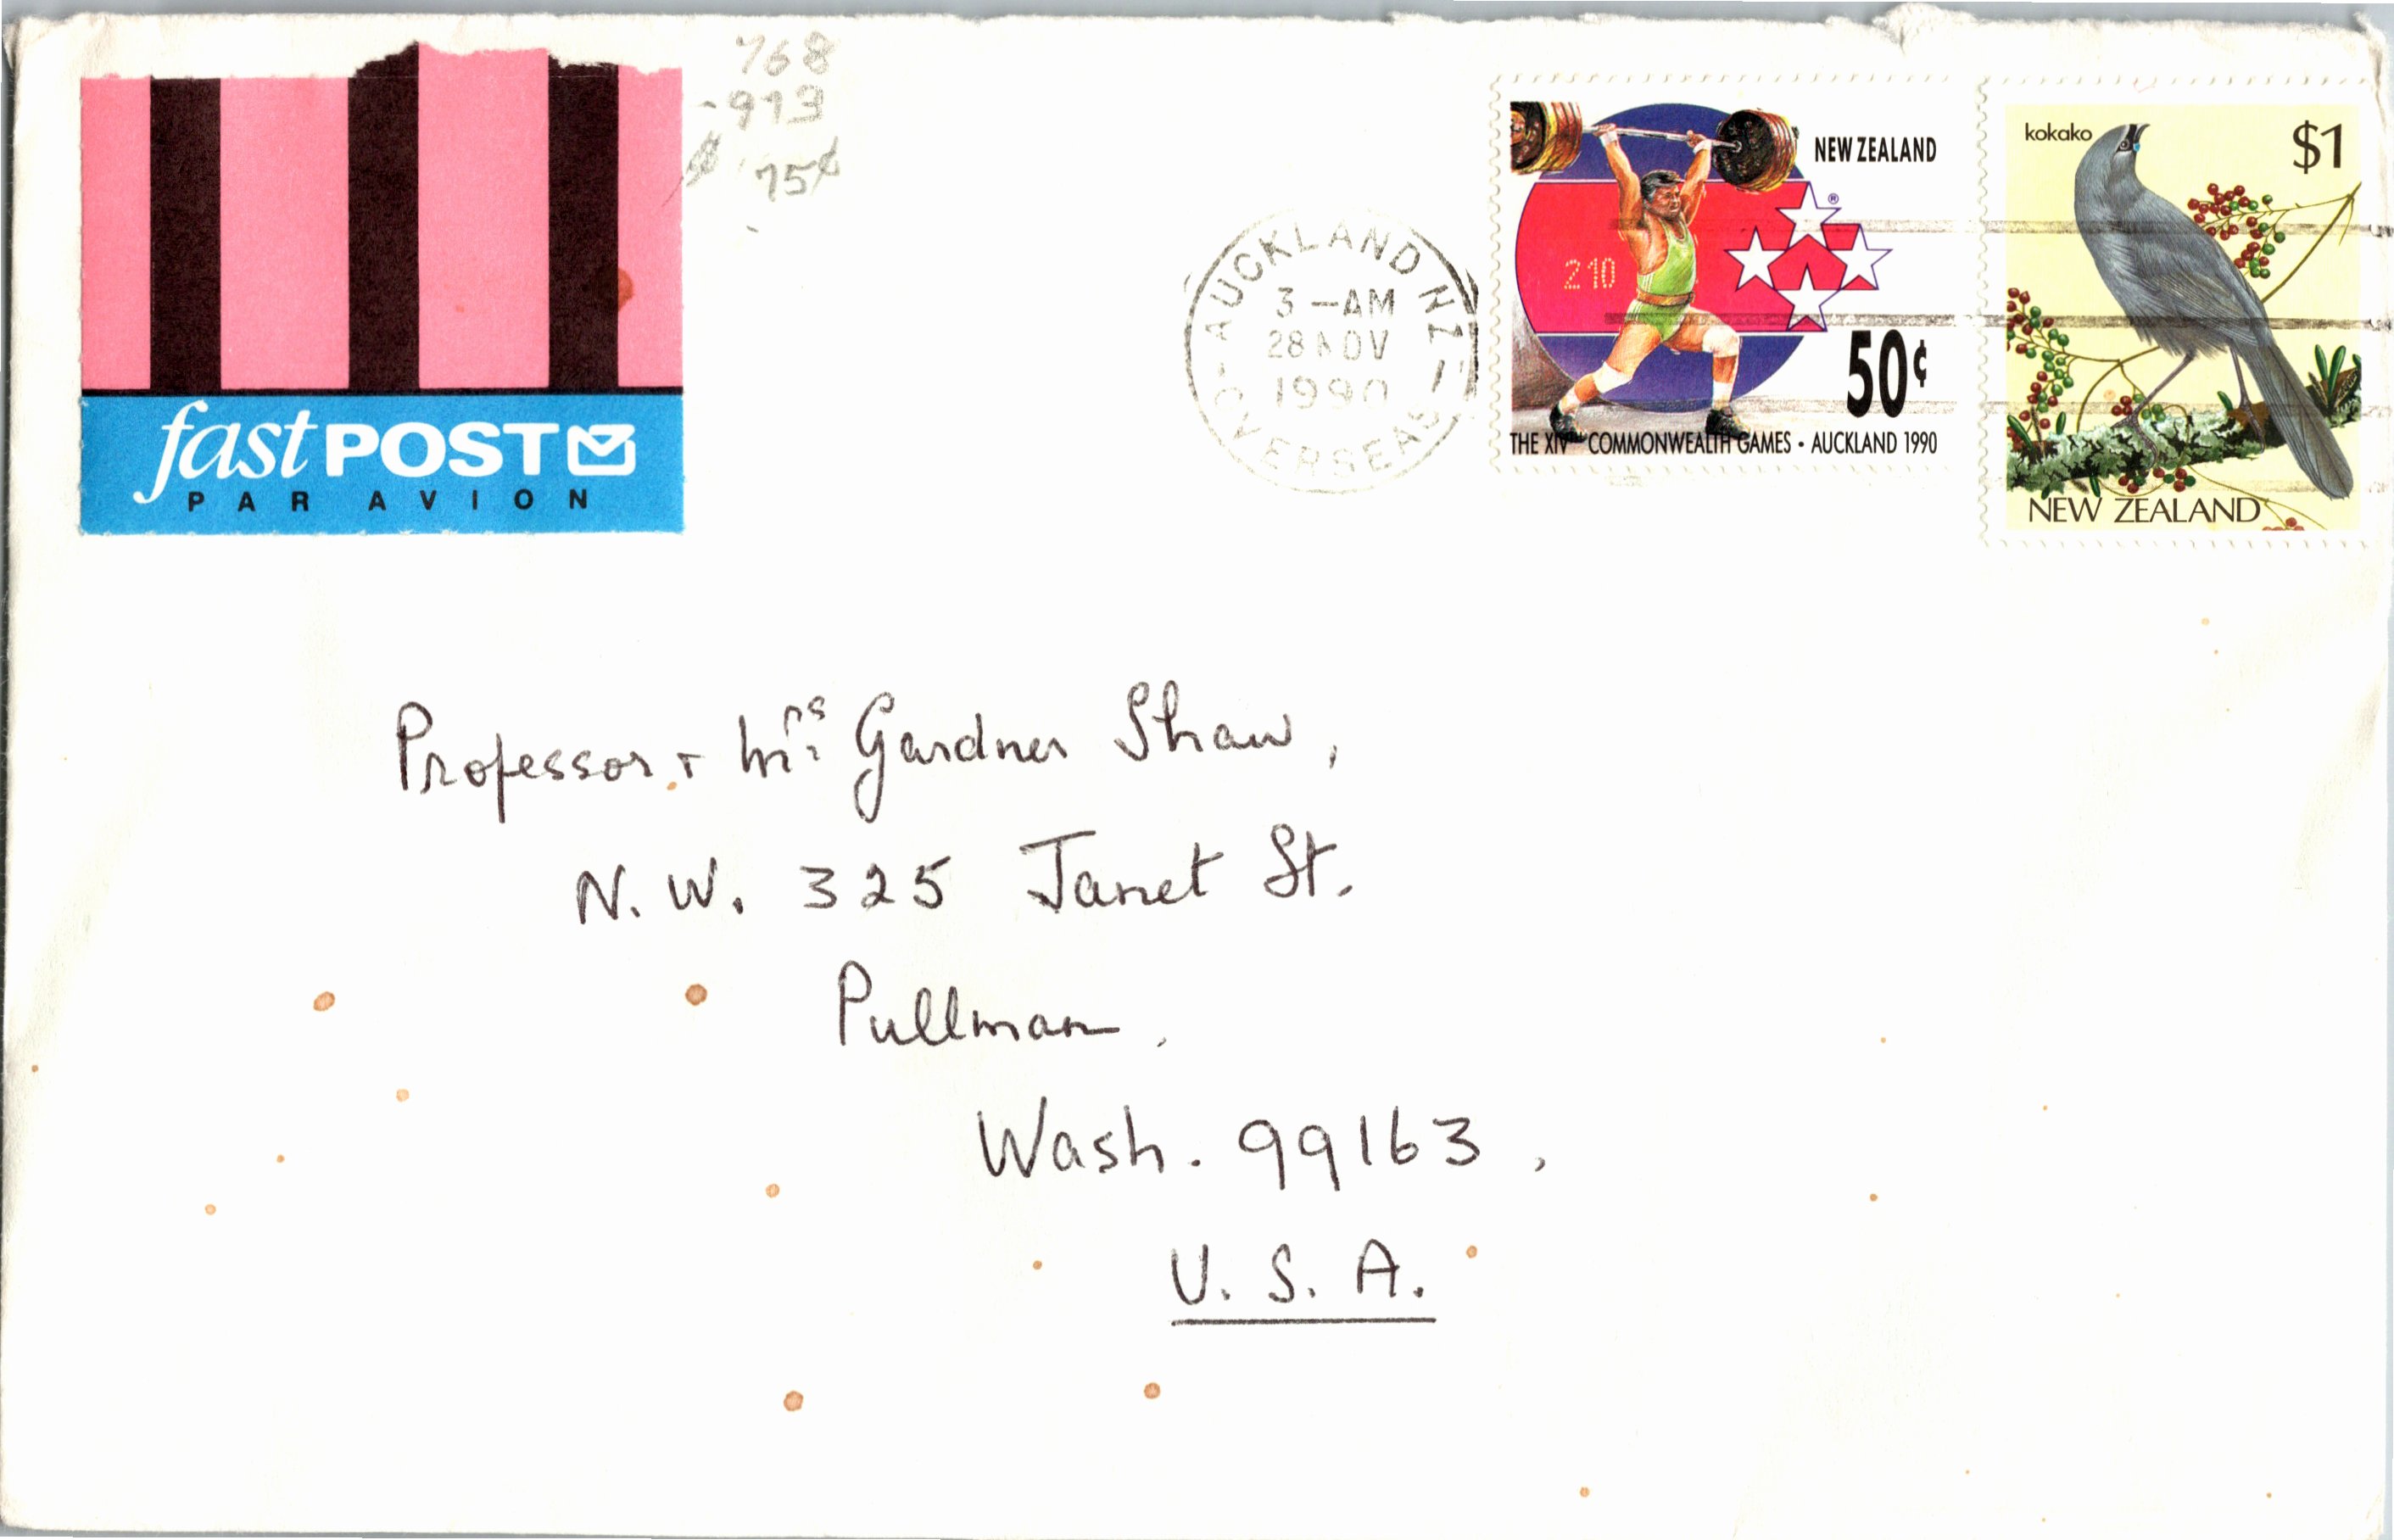 768
-913
75¢
fast POST
PAR AVION
AUCKLAND NZ
3 -AM
28 NOV
1990
OVERSEAS
NEW ZEALAND
®
210
50¢
THE XIV COMMONWEALTH GAMES • AUCKLAND 1990
kokako
$1
NEW ZEALAND
Professor + Mrs Gardner Shaw,
N.W. 325 Janet St.
Pullman,
Wash. 99163,
U.S.A.